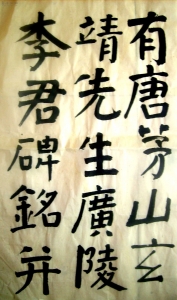 有唐茅山玄
靖先生廣陵
李君碑銘并